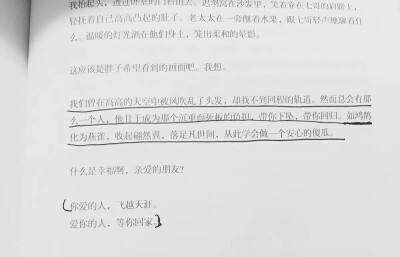 我抬起头，透过厨房的门看出去。迟羽窝在沙发里，笑着靠在七哥的肩膀上，
轻抚着自己高高凸起的肚子。老太太在一旁削着水果，跟七哥轻声地聊着什
么。温暖的灯光洒在他们身上，笼出柔和的晕影。
这应该是胖子希望看到的画面吧。我想。
我们曾在高高的天空中被风吹乱了头发，却找不到回程的轨道。然而总会有那
么一个人，他甘于成为那个沉重而死板的负担，带你下坠，带你回归。如鸿鹄
化为燕雀，收起翩然翼，落足凡世间，从此学会做一个安心的傻瓜。
什么是幸福啊，亲爱的朋友？
你爱的人，飞越天涯。
爱你的人，等你回家。